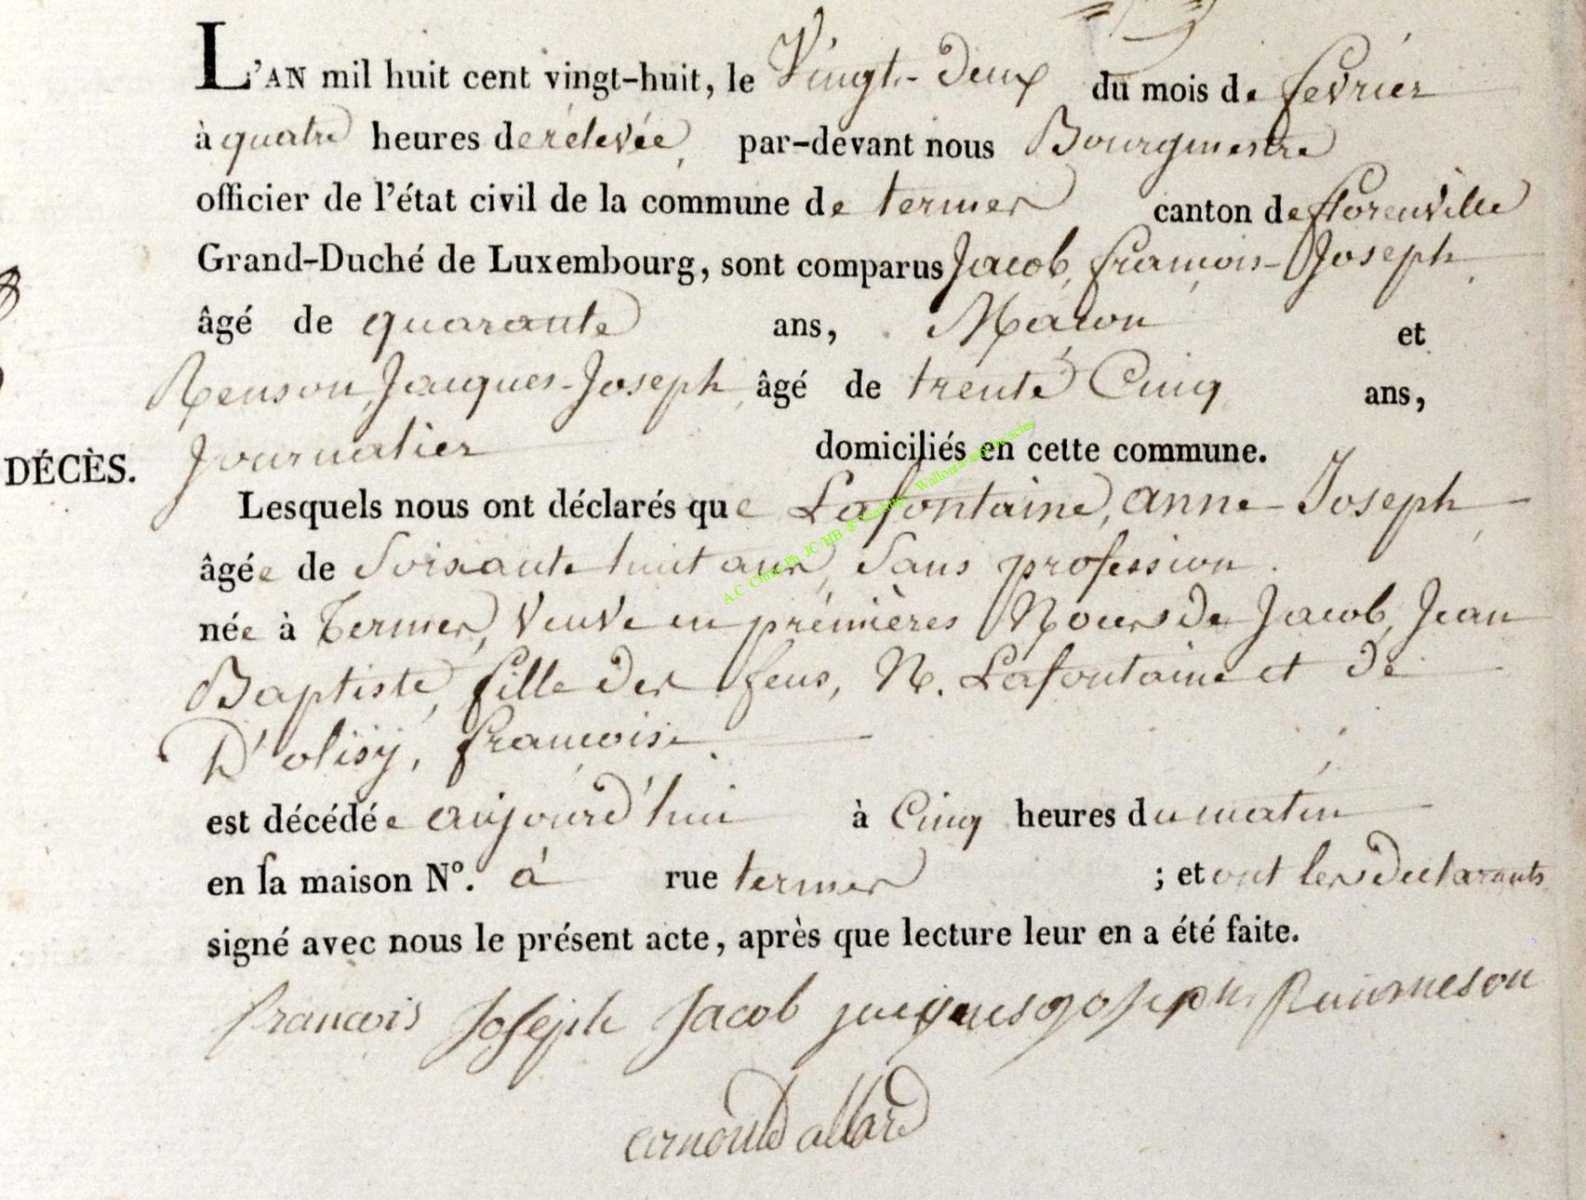 L'AN mil huit cent vingt-huit, le Vingt-deux du mois de fevrier
à quatre heures de rélevée, par-devant nous Bourgmestre
officier de l'état civil de la commune de termes canton de florenville
Grand-Duché de Luxembourg, sont comparus Jacob, françois-Joseph
âgé de quarante ans, Maçon et
Renson, Jacques-Joseph, âgé de trente Cinq ans,
Journalier domiciliés en cette commune.
DÉCÈS.
Lesquels nous ont déclarés que Lafontaine, anne-Joseph
âgée de Soixante huit ans, Sans profession.
née à Termes, Veuve en prémières Noces de Jacob, Jean
Baptiste, fille des feus, N. Lafontaine et de
D'olisy, francoise.
est décédée aujourd'hui à Cinq heures du matin
en sa maison N°. à rue termes ; et ont les déclarants
signé avec nous le présent acte, après que lecture leur en a été faite.
francois Joseph Jacob jacques joseph
arnould allard